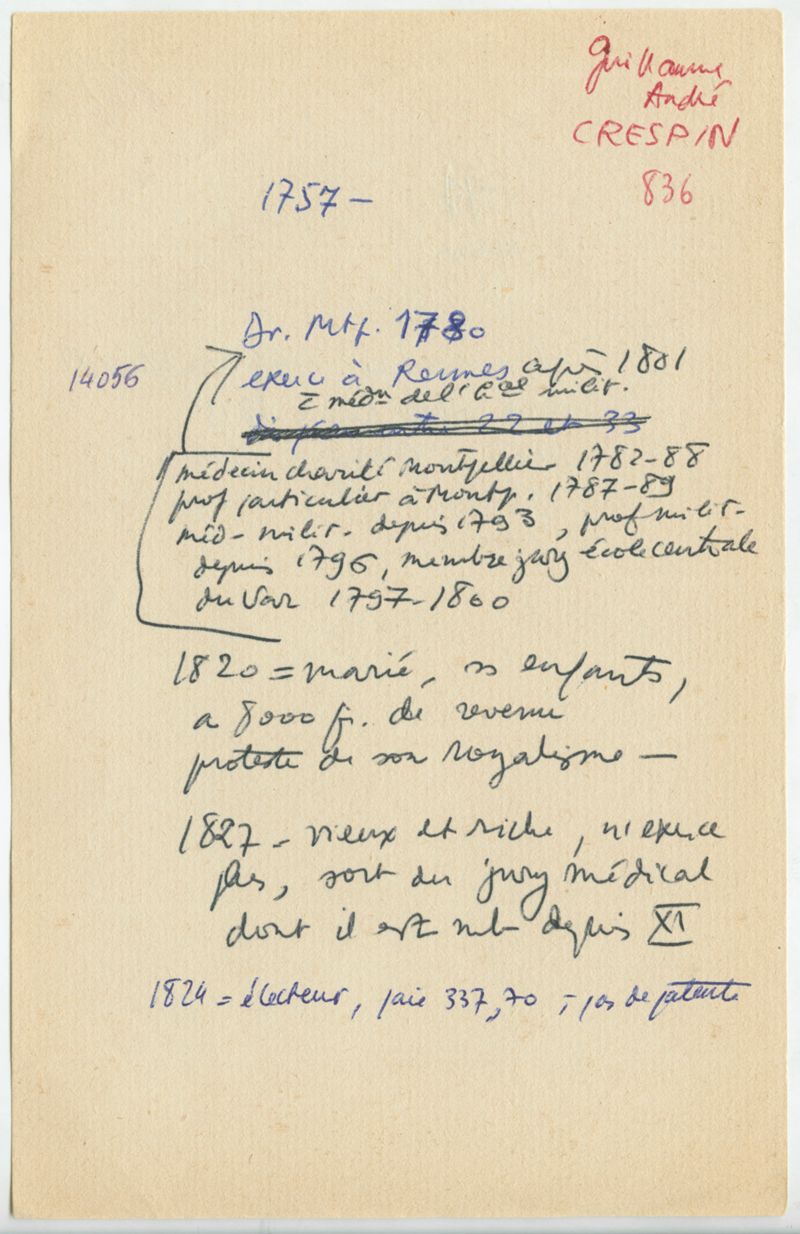 Guillaume
André
CRESPIN
836
1757 –
Dr. Mtp. 1780
14056
exerce à Rennes après 1801
= médn de l' milit.
entre 22 et 33
médecin charité Montpellier 1782-88
prof particulier à Montp. 1787-89
méd- milit- depuis 1793, prof milit-
depuis 1796, membre jury école centrale
du Var 1797-1800
1820 = marié, ss enfants,
a 8000 fr. de revenu
proteste de son royalisme –
1827 – vieux et riche, n'exerce
plus, sort du jury médical
dont il est mb depuis XI
1824 = électeur, paie 337,70, pas de patente